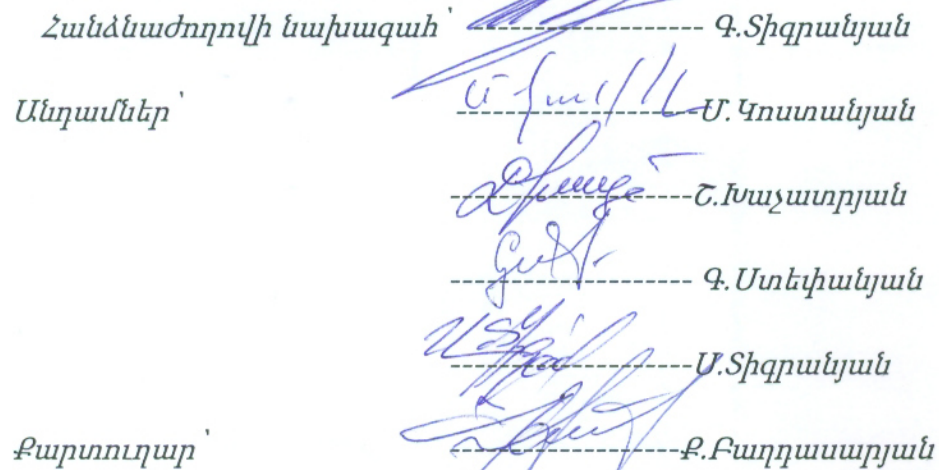 Հանձնաժողովի նախագահ՝ ---------------------- Գ.Տիգրանյան
Անդամներ՝ ----------------------Մ.Կոստանյան
----------------------Շ.Խաչատրյան
---------------------- Գ.Ստեփանյան
----------------------Ս.Տիգրանյան
Քարտուղար՝ ----------------------Ք.Բաղդասարյան